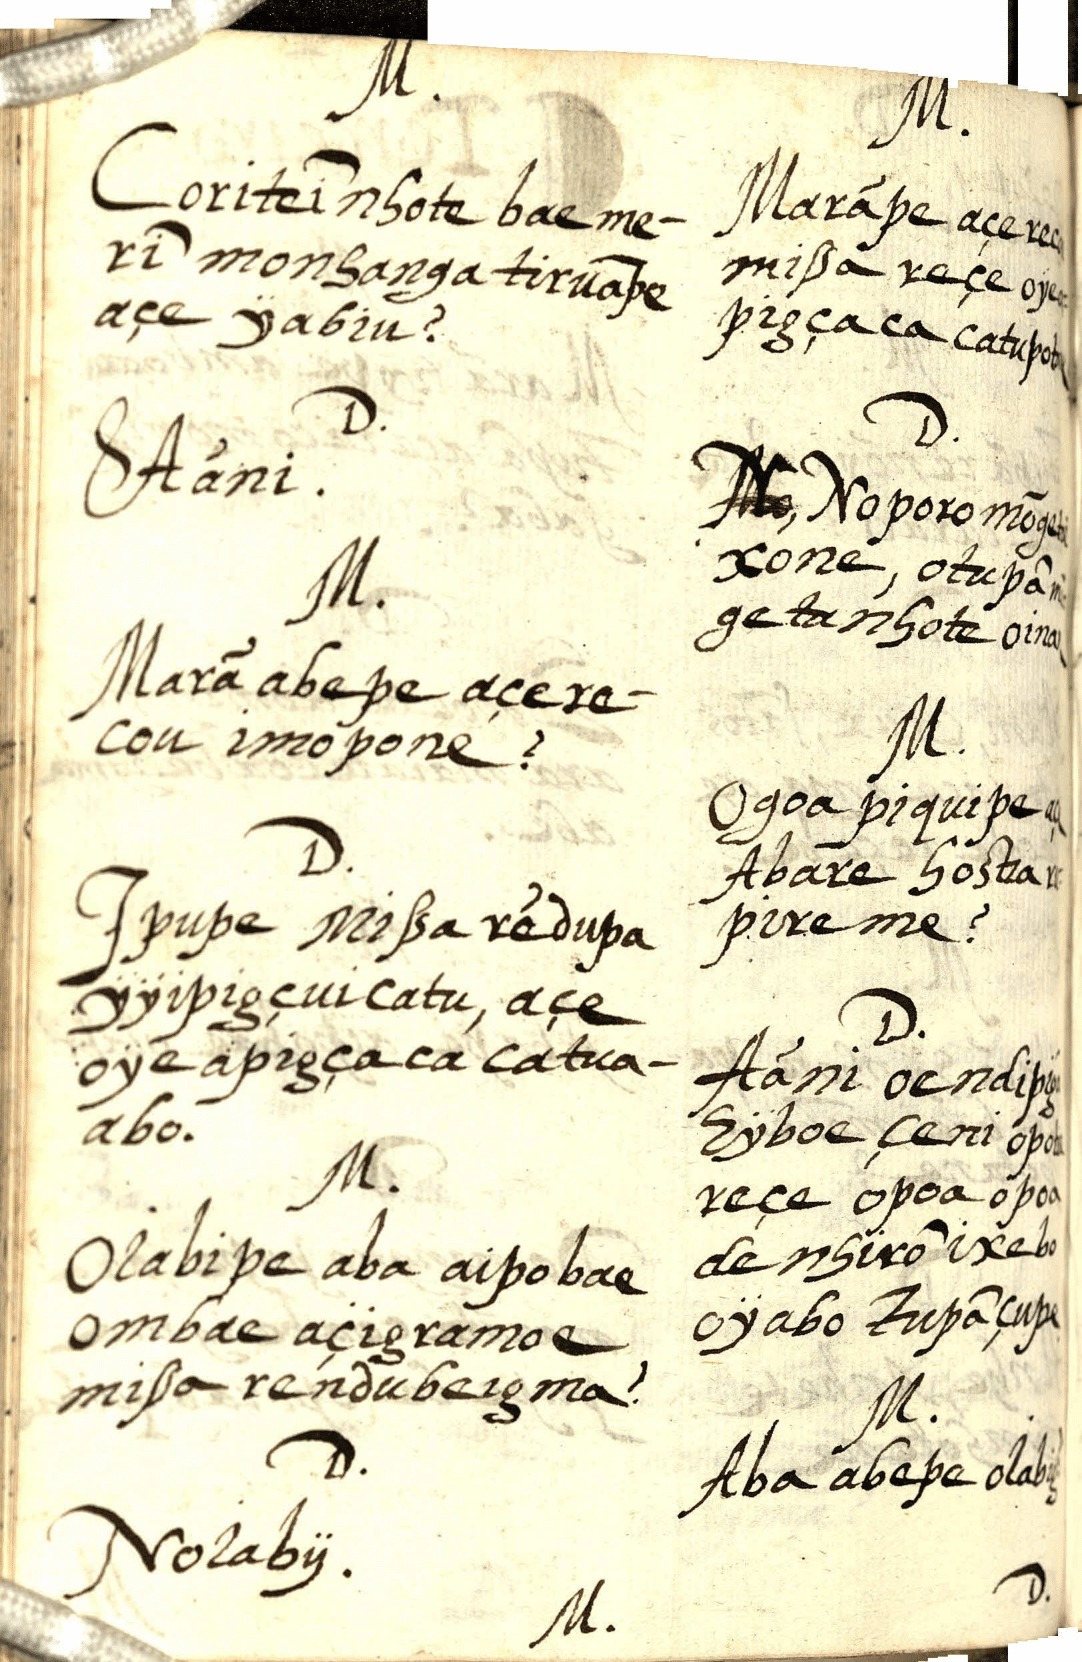 M.
Coriteĩ nhote bae me-
rĩ monhanga tiruãpe
açe ÿabiu?
D.
Aáni.
M.
Marã abepe açe re-
cou imopone?
D.
Ipupe missa rẽdupa
ÿÿipigçui catu, açe
oye apigçaca catua-
abo.
M.
Olabipe aba aipobae
ombae açigramoe
missa rendubeigma?
D.
Nolabij.
M.
M.
Marãpe açe
missa reçe
pigçaca
D.
No poro
xone, otupã
getanhote
M.
Ogoa piquipe
Abare hostia
pireme?
D.
Aáni
hÿboe çeni
reçe opoa
de nhirõ ixebo
oÿabo Tupã çupe
M.
Aba abepe
D.